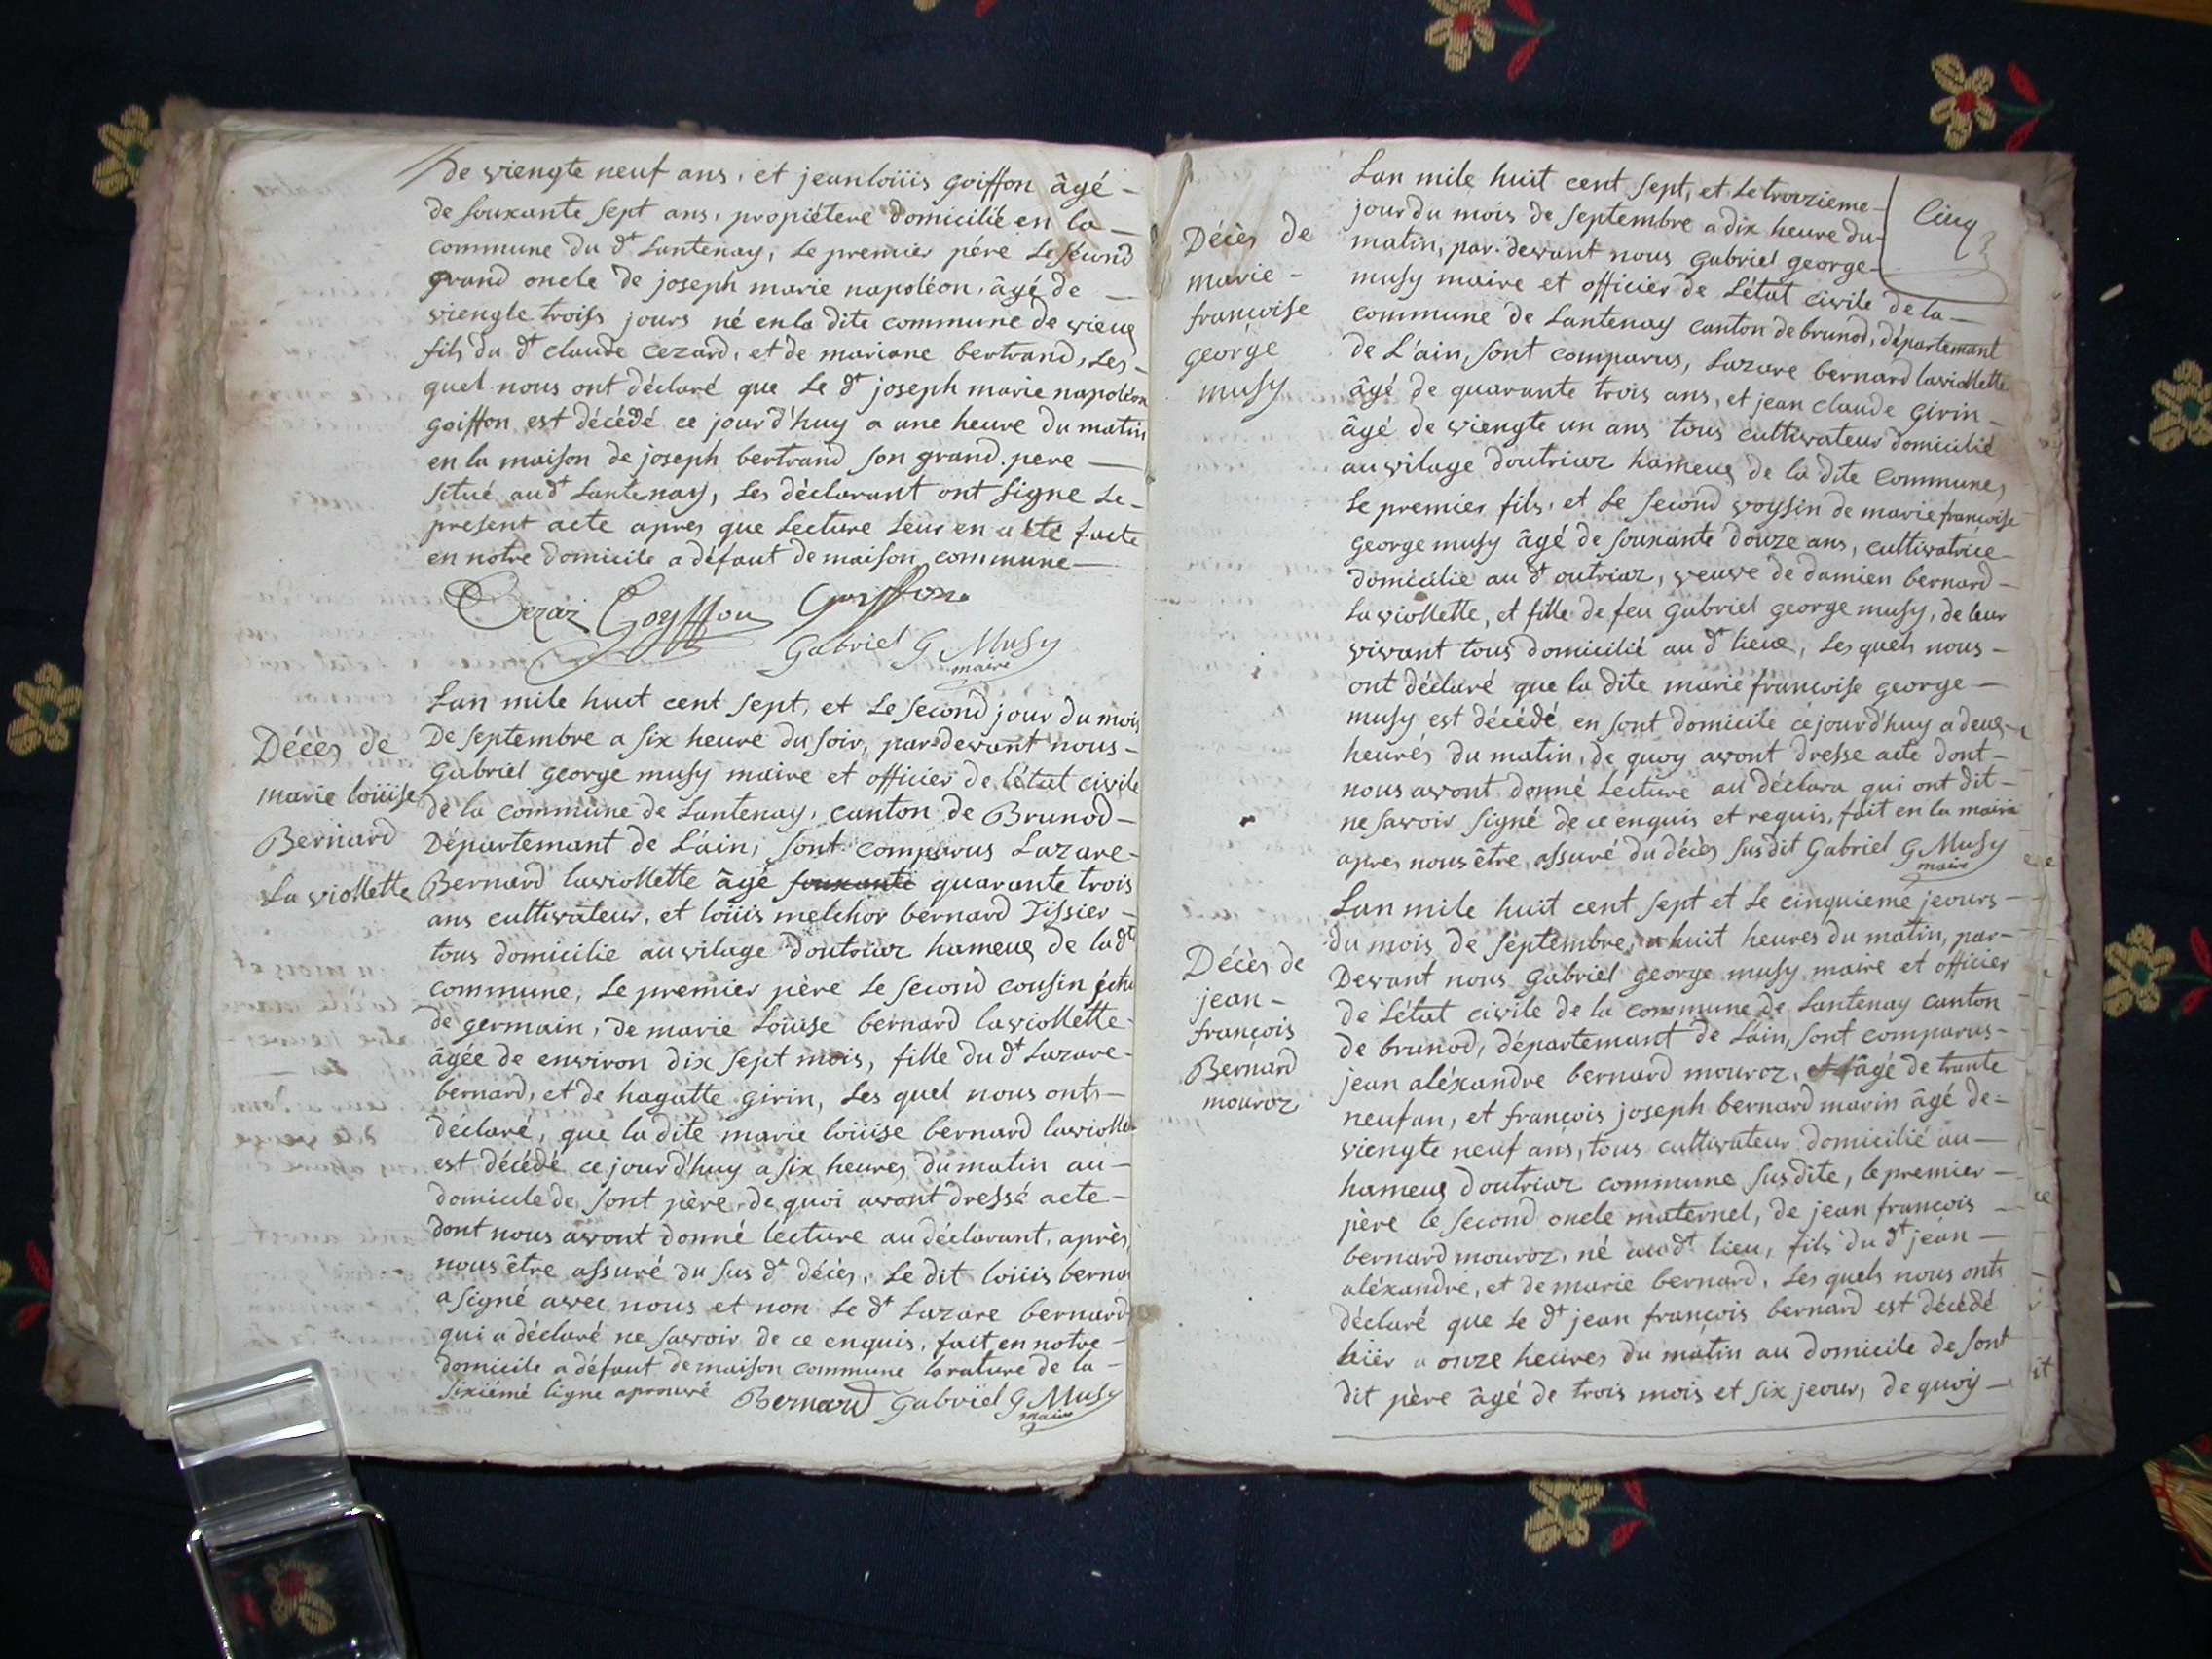 de viengte neuf ans, et jean loüis goiffon âgé -
de souxante sept ans, propiétere domicilié en la -
commune du dt Lantenay, Le premier pére Le sécond
grand oncle de joseph marie napoléon, âgé de -
viengte troiss jours né en la dite commune de vieug
fils du dt claude cezard, et de mariane bertrand, Les -
quel nous ont déclaré que Le dt joseph marie napoléon
goiffon est décédé ce jourd'huy a une heure du matin
en la maison de joseph bertrand son grand. pere -
situé audt Lantenay, Les déclarant ont signe Le -
present acte apres que Lecture Leur en a été faite
en notre domicile a défaut de maison commune -
Cezar Goyffon Goiffon
Gabriel G Musy
maire
Décès de
marie loüise
Bernard
La viollette
Lan mile huit cent sept, et Le second jour du mois
De septembre a six heure du soir, par devant nous -
Gabriel george musy maire et officier de l'état civile
de la commune de Lantenay, canton de Brunod -
Départemant de L'ain, sont comparus Lazare -
Bernard laviollette âgé souxante quarante trois
ans cultivateur, et loüis melchor bernard Tissier -
tous domicilie au vilage doutriaz hameug de la dt
commune, Le premier père Le second cousin
de germain, de marie Loüise bernard laviollette -
âgée de environ dix sept mois, fille du dt Lazare -
bernard, et de hagatte girin, Les quel nous onts -
déclaré, que la dite marie loüise bernard laviollet
est décédé ce jourd'huy a six heures du matin au -
domicile de sont père, de quoi avont dressé acte -
dont nous avont donné lecture au déclarant, après
nous être assuré du sus dt décès, Le dit loüis berna
a signé avec nous et non Le dt Lazare bernard
qui a déclaré ne savoir de ce enquis, fait en notre -
domicile a défaut de maison commune la rature de la -
sixiémé ligne aprouvé Bernard Gabriel G Musy
maire
Cinq
Décès de
marie -
francoise
george
musy
Lan mile huit cent sept, et Le troizieme -
jour du mois de septembre a dix heure du -
matin, par-devant nous Gabriel george -
musy maire et officier de L'état civile de la -
commune de Lantenay canton de brunod, départemant
de L'ain, sont comparus, Lazare bernard laviollette
âgé de quarante trois ans, et jean claude girin -
âgé de viengte un ans tous cultivateur domicilié
au vilage doutriaz hameug de la dite commune,
Le premier fils, et Le second voysin de marie françoise
george musy âgé de souxante douze ans, cultivatrice -
domicilie au dt outriaz, veuve de damien bernard -
Laviollette, et fille de feu Gabriel george musy, de leur
vivant tous domicilié au dt lieue, Les quels nous -
ont déclaré que la dite marie françoise george -
musy est décédé en sont domicile ce jourd'huy a deug
heurés du matin, de quoy avont dresse acte dont -
nous avont donné Lecture au déclara qui ont dit -
ne savoir signé de ce enquis et requis, fait en la mairie
apres nous être assuré du décès susdit Gabriel G Musy
maire
Décès de
jean -
françois
Bernard
mouroz
Lan mile huit cent sept et Le cinquieme jeours -
du mois de septembre, a huit heures du matin, par -
Devant nous Gabriel george musy maire et officier
de L'état civile de la commune de Lantenay canton
de brunod, départemant de L'ain, sont comparus -
jean aléxandre bernard mouroz, âgé de trante
neuf an, et françois joseph bernard marin âgé de -
viengte neuf ans, tous cultivateur domicilié au -
hameug doutriaz commune susdite, le premier -
père le second oncle maternel, de jean françois -
bernard mouroz, né audt lieu, fils du dt jean -
aléxandre, et de marie bernard, Les quels nous onts
déclaré que Le dt jean françois bernard est décédé
hiér a onze heures du matin au domicile de sont
dit père âgé de trois mois et six jeour, de quoy -